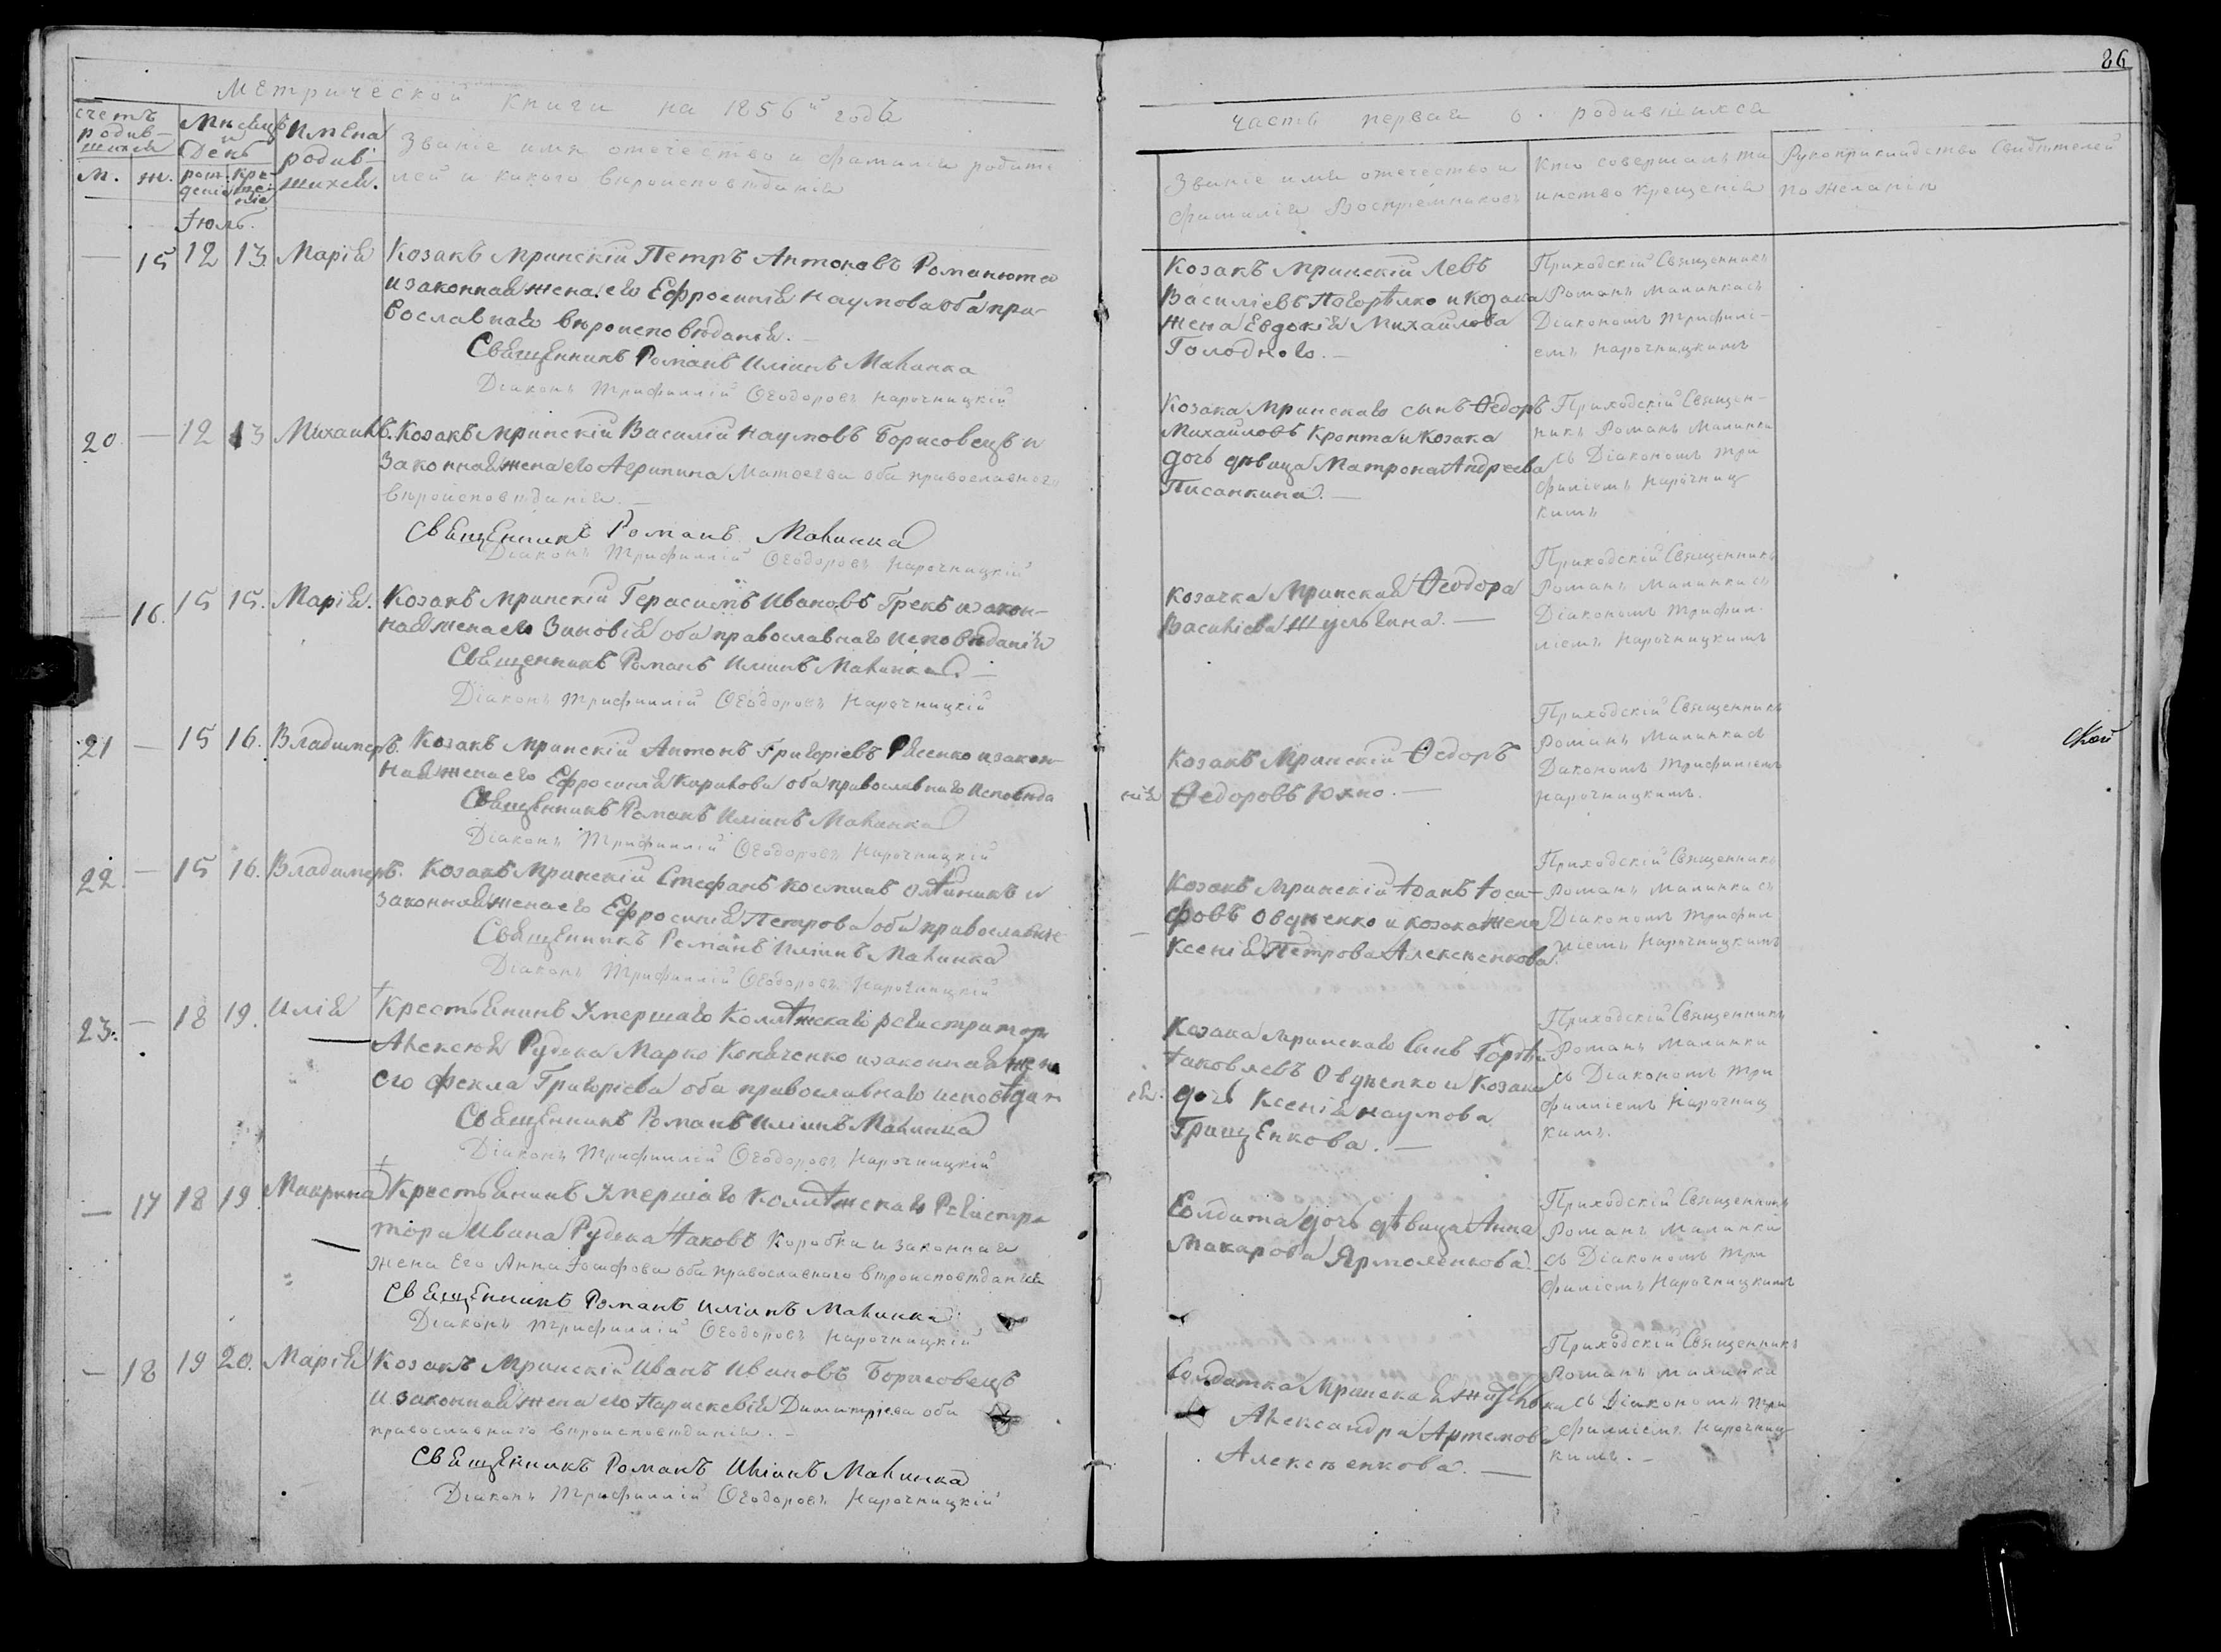 86
Метрической Книги на 1856й годъ
часть первая о родившихся
счетъ родив-шихся
М. Ж.
Мѣсяцъ и День
рож-денія Кре-щенія
Имена родив-шихся.
Званіе имя отечество и фамилія родите
лей и какого вѣроисповѣданія
Званіе имя отечество и
фамилія Воспріемниковъ
Кто совершалъ та
инство Крещенія
Рукоприкладство Свидѣтелей
по желанію
Іюль.
— 15 12 13. Марія
Козакъ Мринскій Петръ Антоновъ Романюта
и законная жена его Ефросинія Наумова оба пра-
вославнаго вѣроисповѣданія. —
Священникъ Романъ Иліинъ Малинка
Діаконъ Трифиллій Ѳеодоровъ Нарочницкій
Козакъ Мринскій Левъ
Василіевъ Погорѣлко и Козака
жена Евдокія Михайлова
Голоднова. —
Приходскій Священникъ
Романъ Малинка съ
Діакономъ Трифилі-
емъ Нарочницкимъ
20. — 12 13 Михаилъ.
Козакъ Мринскій Василій Наумовъ Борисовецъ и
Законная жена его Агрипина Матѳеева оба православнаго
вѣроисповѣданія. —
Священникъ Романъ Малинка
Діаконъ Трифиллій Ѳеодоровъ Нарочницкій
Козака Мринскаго сынъ Ѳедоръ
Михайловъ Кропта и Козака
дочь дѣвица Матрона Андреева
Писанкина. —
Приходскій Священ-
никъ Романъ Малинка
съ Діакономъ Три
филіемъ Нарочниц
кимъ
— 16. 15 15. Марія.
Козакъ Мринскій Герасимъ Ивановъ Грекъ и закон-
ная жена его Зиновія оба православнаго исповѣданія
Священникъ Романъ Иліинъ Малинка. —
Діаконъ Трифиллій Ѳеодоровъ Нарочницкій
Козачка Мринская Ѳеодора
Василіева Жульвина. —
Приходскій Священникъ
Романъ Малинка съ
Діакономъ Трифил-
ліемъ Нарочницкимъ
21 — 15 16. Владимеръ.
Козакъ Мринскій Антонъ Григоріевъ Усенко и закон-
ная жена его Ефросинія Карпова оба православнаго исповѣда
нія
Священникъ Романъ Иліинъ Малинка
Діаконъ Трифиллій Ѳеодоровъ Нарочницкій
Козакъ Мринскій Ѳедоръ
Ѳедоровъ Юхно. —
Приходскій Священникъ
Романъ Малинка съ
Діакономъ Трифиліемъ
Нарочницкимъ.
ской
22. — 15 16. Владимеръ.
Козакъ Мринскій Стефанъ Косминъ Олѣйникъ и
законная жена его Ефросинія Петрова оба православные
Священникъ Романъ Иліинъ Малинка
Діаконъ Трифиллій Ѳеодоровъ Нарочницкій
Козакъ Мринскій Іоанъ Іоси-
фовъ Овдѣенко и козака жена
Ксенія Петрова Алексѣенкова.
Приходскій Священникъ
Романъ Малинка съ
Діакономъ Трифил
ліемъ Нарочницкимъ
23. — 18 19. Илія
Крестьянинъ Умершаго Коллѣжскаго регистратора
Алексѣя Рудека Марко Коняченко и законная жена
его Фекла Григоріева оба православнаго исповѣдан
ія.
Священникъ Романъ Иліинъ Малинка
Діаконъ Трифиллій Ѳеодоровъ Нарочницкій
Козака Мринскаго Сынъ Гордѣй
Іаковлевъ Овдѣенко и Козака
дочь Ксенія Наумова
Грищенкова. —
Приходскій Священникъ
Романъ Малинка
съ Діакономъ Три
филліемъ Нарочниц
кимъ.
— 17 18 19. Макрина
Крестьянинъ Умершаго Коллѣжскаго Регистра
тора Ивана Рудека Іаковъ Коробка и законная
жена Его Анна Іосифова оба православнаго вѣроисповѣданія
Священникъ Романъ Иліинъ Малинка
Діаконъ Трифиллій Ѳеодоровъ Нарочницкій
Солдата дочь дѣвица Анна
Макарова Ярмоленкова. —
Приходскій Священникъ
Романъ Малинка
съ Діакономъ Три
филіемъ Нарочницкимъ
— 18 19 20. Марія
Козакъ Мринскій Иванъ Ивановъ Борисовецъ
и законная жена его Параскевія Димитріева оба
православнаго вѣроисповѣданія. —
Священникъ Романъ Иліинъ Малинка
Діаконъ Трифиллій Ѳеодоровъ Нарочницкій
Солдатка Мринская
Александра Артемова
Алексѣенкова. —
Приходскій Священникъ
Романъ Малинка
съ Діакономъ Три
филліемъ Нарочниц-
кимъ. —